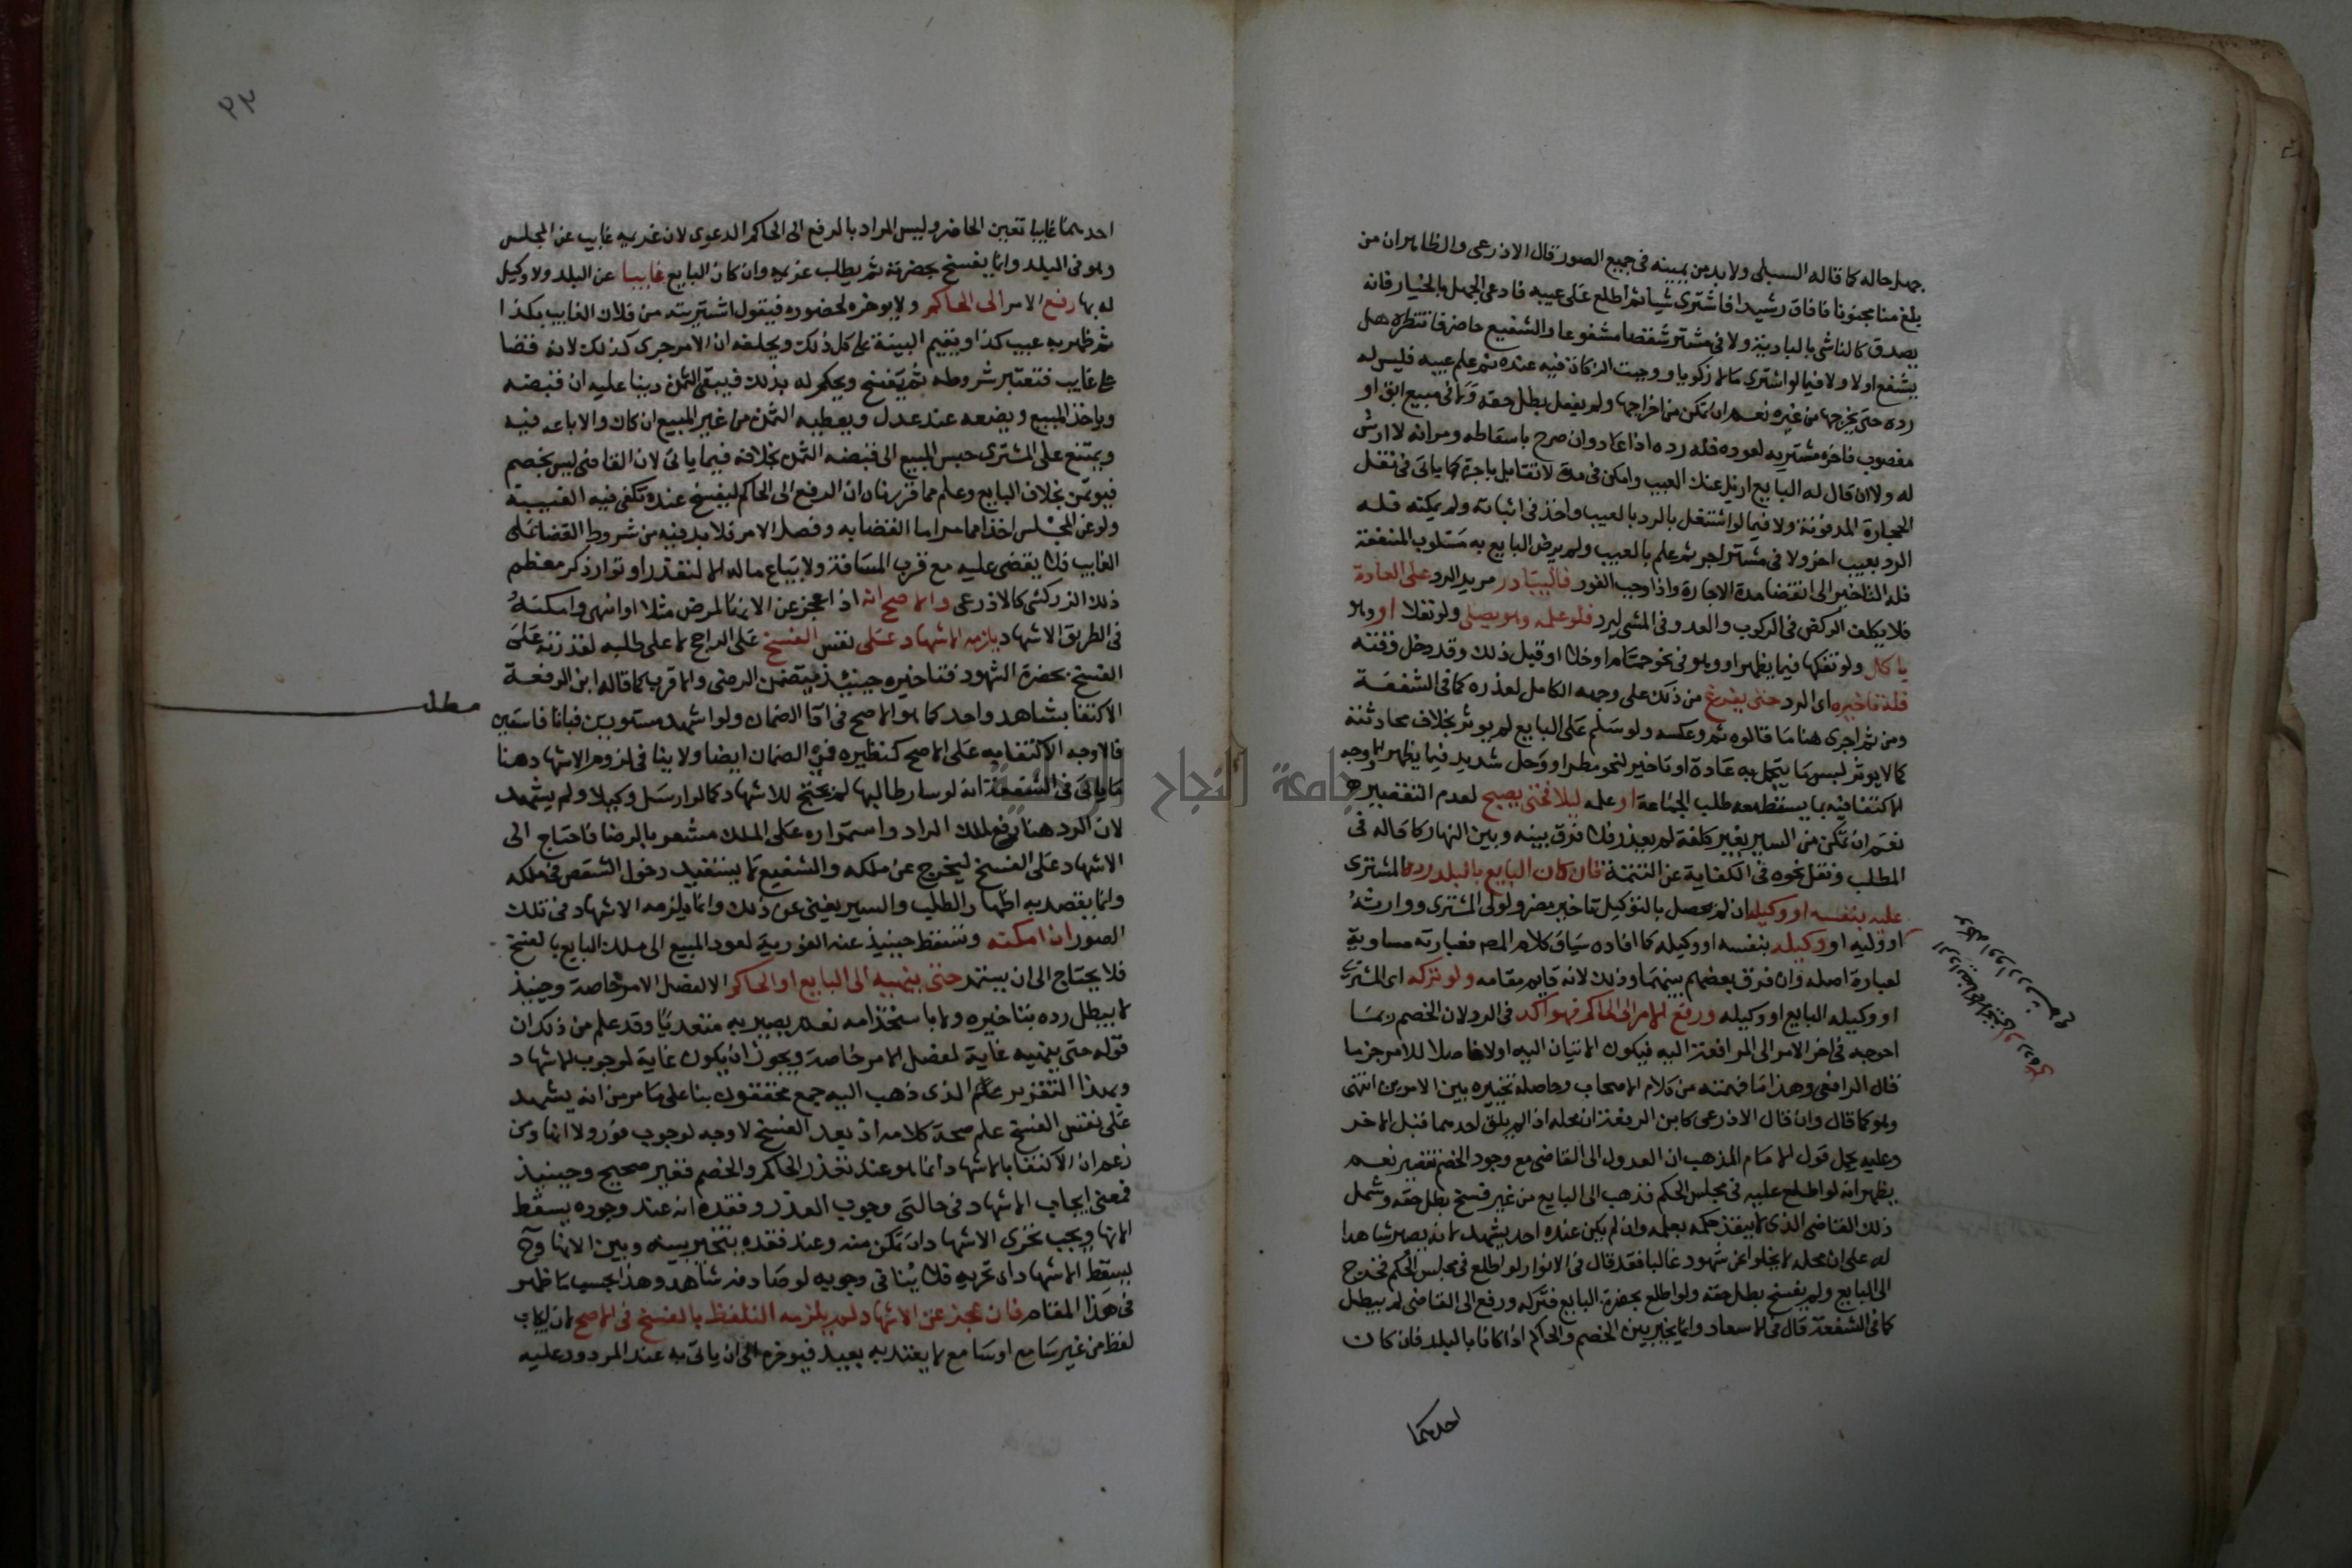 جهل حاله كما قاله السبكى ولا بد من يمينه فى جميع الصور قال الاذرعى والظاهر ان من
بلغ منا مجنونا فافاق رشيدا فاشترى شيا ثم اطلع على عيبه فادعى الجهل بالخيار فانه
يصدق كالناشى بالبادية ولا فى مشتر شقصا مشفوعا والشفيع حاضر فانتظره هل
يشفع اولا ولا فيما لو اشترى مالا زكويا ووجبت الزكاة فيه عنده ثم علم عيبه فليس له
رده حتى يخرجها من غيره نعم ان تمكن من اخراجها ولم يفعل بطل حقه ولا فى مبيع ابق او
مغصوب فاخره مشتريه لعوده فله رده اذا عاد وان صرح باسقاطه ومر انه لا ارش
له ولا ان قال له البايع ازيل عنك العيب وامكن فى مدة لا تقابل باجرة كما ياتى فى نقل
الحجارة المدفونة ولا فيما لو اشتغل بالرد بالعيب واخذ فى اثباته ولم يمكنه فله
الرد بعيب اخر ولا فى مشتر اجر ثم علم بالعيب ولم يرض البايع به مسلوب المنفعة
فله التاخير الى انقضا مدة الاجارة واذا وجب الفور فاليبادر مريد الرد على العادة
فلا يكلف الركض فى الركوب والعدو فى المشى ليرد فلو علمه وهو يصلى ولو نفلا او وهو
ياكل ولو تفكها فيما يظهر او وهو فى نحو حمام او خلا او قبل ذلك وقد دخل وقته
فله تاخيره اى الرد حتى يفرغ من ذلك على وجهه الكامل لعذره كما فى الشفعة
ومن ثم اجرى هنا ما قالوه ثم وعكسه ولو سلم على البايع لم يوثر بخلاف محادثته
كما لا يوثر لبس ما يتجمل به عادة او تاخير لنحو مطر او وحل شديد فيما يظهر الاوجه
الاكتفا فيه بما يسقط معه طلب الجماعة او علمه ليلا فحتى يصبح لعدم التقصير
نعم ان تمكن من السير بغير كلفة لم يعذر فلا فرق بينه وبين النهار كما قاله فى
المطلب ونقل نحوه فى الكفاية عن التتمة فان كان البايع بالبلد رده المشترى
عليه بنفسه او وكيله ان لم يحصل بالتوكيل تاخير مضر ولولى المشترى ووارثه
او وليه او وكيله بنفسه او وكيله كما افاده سياق كلام المص فعبارته مساوية
لعبارة اصله وان فرق بعضهم بينهما وذلك لانه قايم مقامه ولو تركه اى المشترى
او وكيله البايع او وكيله ورفع الامر الى الحاكم فهو اكد فى الرد لان الخصم ربما
احوجه فى اخر الامر الى المرافعة اليه فيكون الاتيان اليه اولا فاصلا للامر جزما
قال الرافعى وهذا ما فهمته من كلام الاصحاب وحاصله تخييره بين الامرين انتهى
وهو كما قال وان قال الاذرعى كابن الرفعة ان محله اذا لم يلق احدهما قبل الاخر
وعليه يحمل قول الامام المذهب ان العدول الى القاضى مع وجود الخصم تقصير نعم
يظهر انه لو اطلع عليه فى مجلس الحكم فذهب الى البايع من غير فسخ بطل حقه وشمل
ذلك القاضى الذى لا ينفذ حكمه بعلمه وان لم يكن عنده احد يشهد لانه يصير شاهدا
له على ان محله لا يخلو عن شهود غالبا فقد قال فى الانوار لو اطلع فى مجلس الحكم فخرج
الى البايع ولم يفسخ بطل حقه ولو اطلع بحضرة البايع فتركه ورفع الى القاضى لم يبطل
كما فى الشفعة قال فى الاسعاد وانما يخير بين الخصم والحاكم اذا كانا بالبلد فان كان
احدهما
٢٣
احدهما غايبا تعين الحاضر وليس المراد بالرفع الى الحاكم الدعوى لان غريمه غايب عن المجلس
وهو فى البلد وانما يفسخ بحضرته ثم يطلب غريمه وان كان البايع غايبا عن البلد ولا وكيل
له بها رفع الامر الى الحاكم ولا يوخره لحضوره فيقول اشتريته من فلان الغايب بكذا
ثم ظهر به عيب كذا ويقيم البينة على كل ذلك ويحلفه ان الامر جرى كذلك لانه قضا
على غايب فتعتبر شروطه ثم يفسخ ويحكم له بذلك فيبقى الثمن دينا عليه ان قبضه
وياخذ المبيع ويضعه عند عدل ويعطيه الثمن من غير المبيع ان كان والا باعه فيه
ويمتنع على المشترى حبس المبيع الى قبضه الثمن بخلافه فيما ياتى لان القاضى ليس بخصم
فيوتمن بخلاف البايع وعلم مما قررناه ان الرفع الى الحاكم ليفسخ عنده تكفى فيه الغيبة
ولو عن المجلس اخذا مما مر اما القضا به وفصل الامر فلا بد فيه من شروط القضا على
الغايب فلا يقضى عليه مع قرب المسافة ولا يباع ماله الا لتعذر او توار ذكر معظم
ذلك الزركشى كالاذرعى والاصح انه اذا عجز عن الانها لمرض مثلا او انهى وامكنه
فى الطريق الاشهاد يلزمه الاشهاد على نفس الفسخ على الراجح لا على طلبه لقدرته على
الفسخ بحضرة الشهود فتاخيره حينيذ يتضمن الرضى والاقرب كما قاله ابن الرفعة
الاكتفا بشاهد واحد كما هو الاصح فى ادا الضمان ولو اشهد مستورين فبانا فاسقين
مطلب
فالاوجه الاكتفا به على الاصح كنظيره فى الضمان ايضا ولا ينا فى لزوم الاشهاد هنا
ما ياتى فى الشفعة انه لو سار طالبها لم يحتج للاشهاد كما لو ارسل وكيلا ولم يشهد
لان الرد هنا رفع لملك الراد واستمراره على الملك مشعر بالرضا فاحتاج الى
الاشهاد على الفسخ ليخرج عن ملكه والشفيع لا يستفيد دخول الشقص فى ملكه
وانما يقصد به اظهار الطلب والسير يغنى عن ذلك وانما يلزمه الاشهاد فى تلك
الصور ان امكنه وتسقط حينيذ عنه الفورية لعود المبيع الى ملك البايع بالفسخ
فلا يحتاج الى ان يستمر حتى ينهيه الى البايع او الحاكم الا لفصل الامر خاصة وحينيذ
لا يبطل رده بتاخيره ولا باستخدامه نعم يصير به متعديا وقد علم من ذلك ان
قوله حتى ينهيه غاية لفصل الامر خاصة ويجوز ان يكون غاية لوجوب الاشهاد
وبهذا التقرير علم الذى ذهب اليه جمع محققون بنا على ما مر من انه يشهد
على نفس الفسخ علم صحة كلامه اذ بعد الفسخ لا وجه لوجوب فور ولا انها ومن
زعم ان الاكتفا بالاشهاد انما هو عند تعذر الحاكم والخصم فغير صحيح وحينيذ
فمعنى ايجاب الاشهاد فى حالتى وجود العذر وفقده انه عند وجوده يسقط
الانها ويجب تحرى الاشهاد ان تمكن منه وعند فقده يتخير بينه وبين الانها وح
يسقط الاشهاد اى تحريه فلا ينافى وجوبه لو صادفه شاهد وهذا بحسب ما ظهر
فى هذا المقام فان عجز عن الاشهاد لم يلزمه التلفظ بالفسخ فى الاصح لان ايجاب
لفظ من غير سامع او سامع لا يعتد به بعيد فيوخره الى ان ياتى به عند المردود عليه
جامعة النجاح